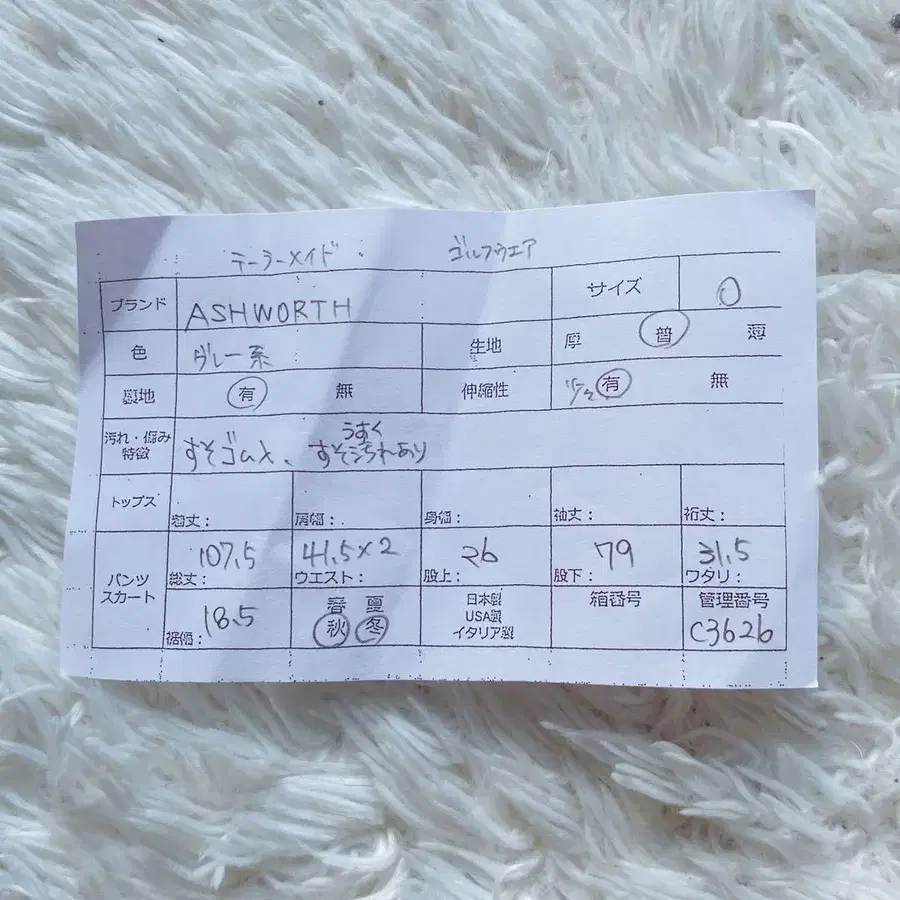 テーラーメイド ゴルフウエア
ブランド ASHWORTH サイズ 0
色 グレー系 生地 厚 普 薄
裏地 有 無 伸縮性 有 無
うすく
汚れ・傷み
特徴 すそゴム入、すそ汚れあり
トップス 着丈: 肩幅: 身幅: 袖丈: 裄丈:
107.5 41.5×2 26 79 31.5
パンツ
スカート
総丈: ウエスト: 股上: 股下: ワタリ:
18.5
裾幅:
春 夏
秋 冬
日本製
USA製
イタリア製
箱番号
管理番号
C3626